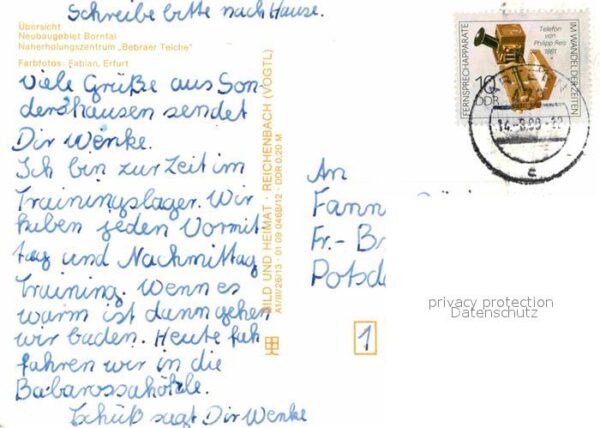 Schreibe bitte nach Hause.
Übersicht
Neubaugebiet Borntal
Naherholungszentrum „Bebraer Teiche"
Farbfotos: Fabian, Erfurt
Viele Grüße aus Son
dershausen sendet
Dir Wenke.
Ich bin zur Zeit im
Trainingslager. Wir
haben jeden Vormit
tag und Nachmittag
Training. Wenn es
warm ist dann gehen
wir baden. Heute fah
fahren wir in die
Babarossahöhle.
Tschüß sagt Dir Wenke
BILD UND HEIMAT · REICHENBACH (VOGTL)
A1/III/26/13 · 01 09 0468/12 · DDR 0,20 M
FERNSPRECHAPPARATE
IM WANDEL DER ZEITEN
Telefon
von
Philipp Reis
1861
10
DDR
An
Fann
Fr.- B
Potsd
1
privacy protection
Datenschutz